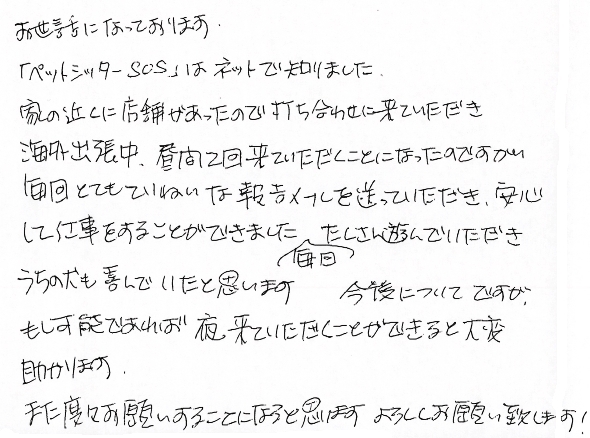 お世話になっております.
「ペットシッターSOS」は ネットで知りました.
家の近くに店舗があったので打ち合わせに来ていただき
海外出張中、昼間2回来ていただくことになったのですが
毎回とてもていねいな報告メールを送っていただき、安心
して仕事をすることができました たくさん遊んでいただき
毎回
うちの犬も喜んでいたと思います 今後についてですが,
もし可能であれば 夜、来ていただくことができると大変
助かります.
また度々お願いすることになると思います よろしくお願い致します!